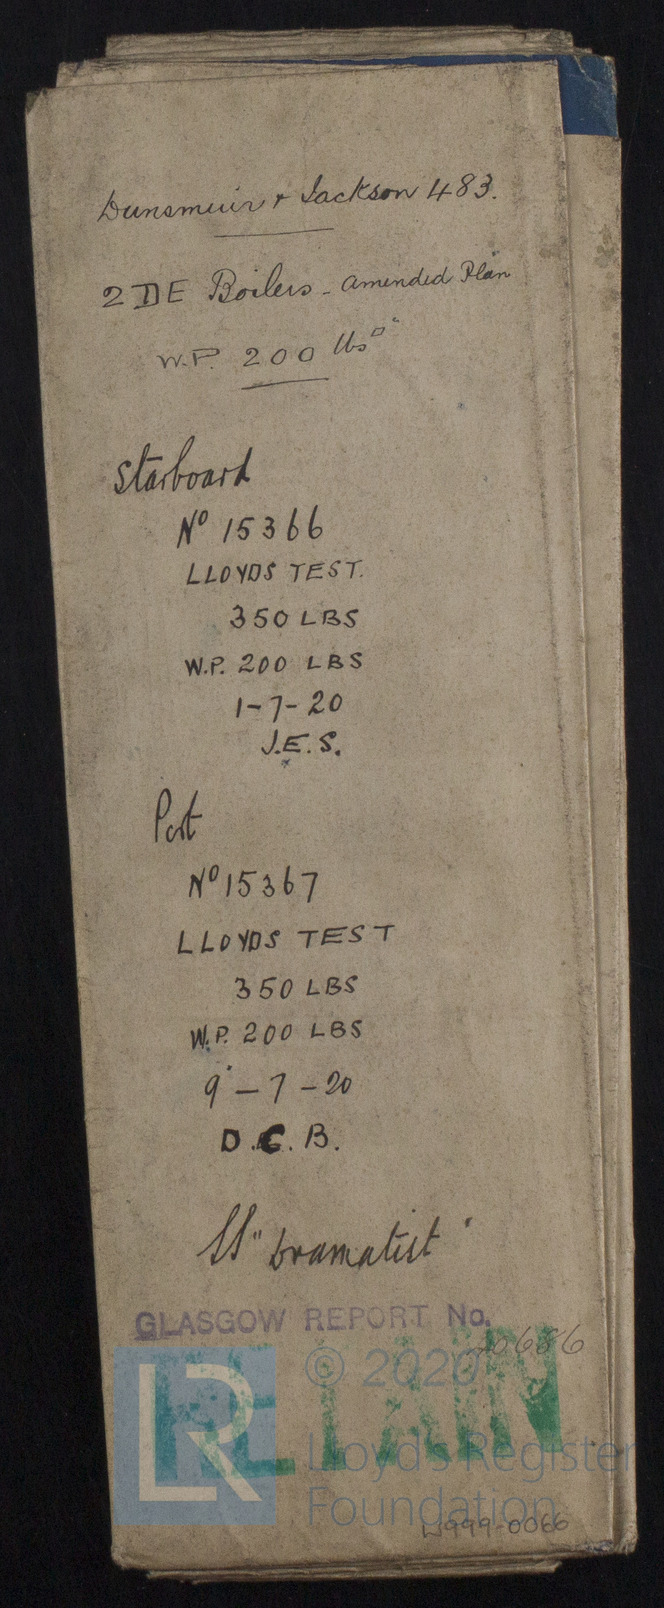 Dunsmuir & Jackson 483.
2 DE Boilers - Amended Plan
W.P. 200 lbs □"
Starboard
Nº 15366
LLOYDS TEST.
350 LBS
W.P. 200 LBS
1-7-20
J.E.S.
Port
Nº 15367
LLOYDS TEST
350 LBS
W.P. 200 LBS
9-7-20
D.C.B.
SS "Dramatist"
GLASGOW REPORT No.
RETAIN
LR
© 2020
Lloyd's Register
Foundation
W999-0066